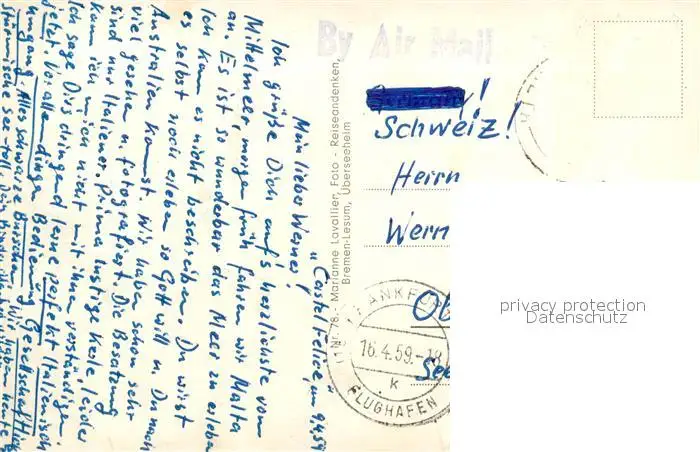 "Castel Felice", 9.4.59
Mein lieber Werner!
Ich grüße Dich auf's herzlichste vom
Mittelmeer, morgen früh fahren wir Malta
an. Es ist so wunderbar das Meer zu erleben
Ich kan es nicht beschreiben. Du wirst
es selbst noch erleben so Gott will u. Du nach
Australien kommst. Wir haben schon sehr
viel gesehen u. fotografiert. Die Besatzung
sind nur Italiener, prima lustige Kerle, leider
kann ich mich nicht mit ihnen verständigen.
Ich sage Dir's dringend lerne perfekt Italienisch
jetzt. Vor allen dingen Bedienung Gesellschaft
Alles schwarze Wir
stürmische See haben heute
Nr. 78 - Marianne Lavallier, Foto - Reiseandenken,
Bremen-Lesum, Überseeheim
By Air Mail
Germany!
Schweiz!
Herrn
Wern
Ob
See
FRANKFURT
16.4.59.-18
k
FLUGHAFEN
privacy protection
Datenschutz